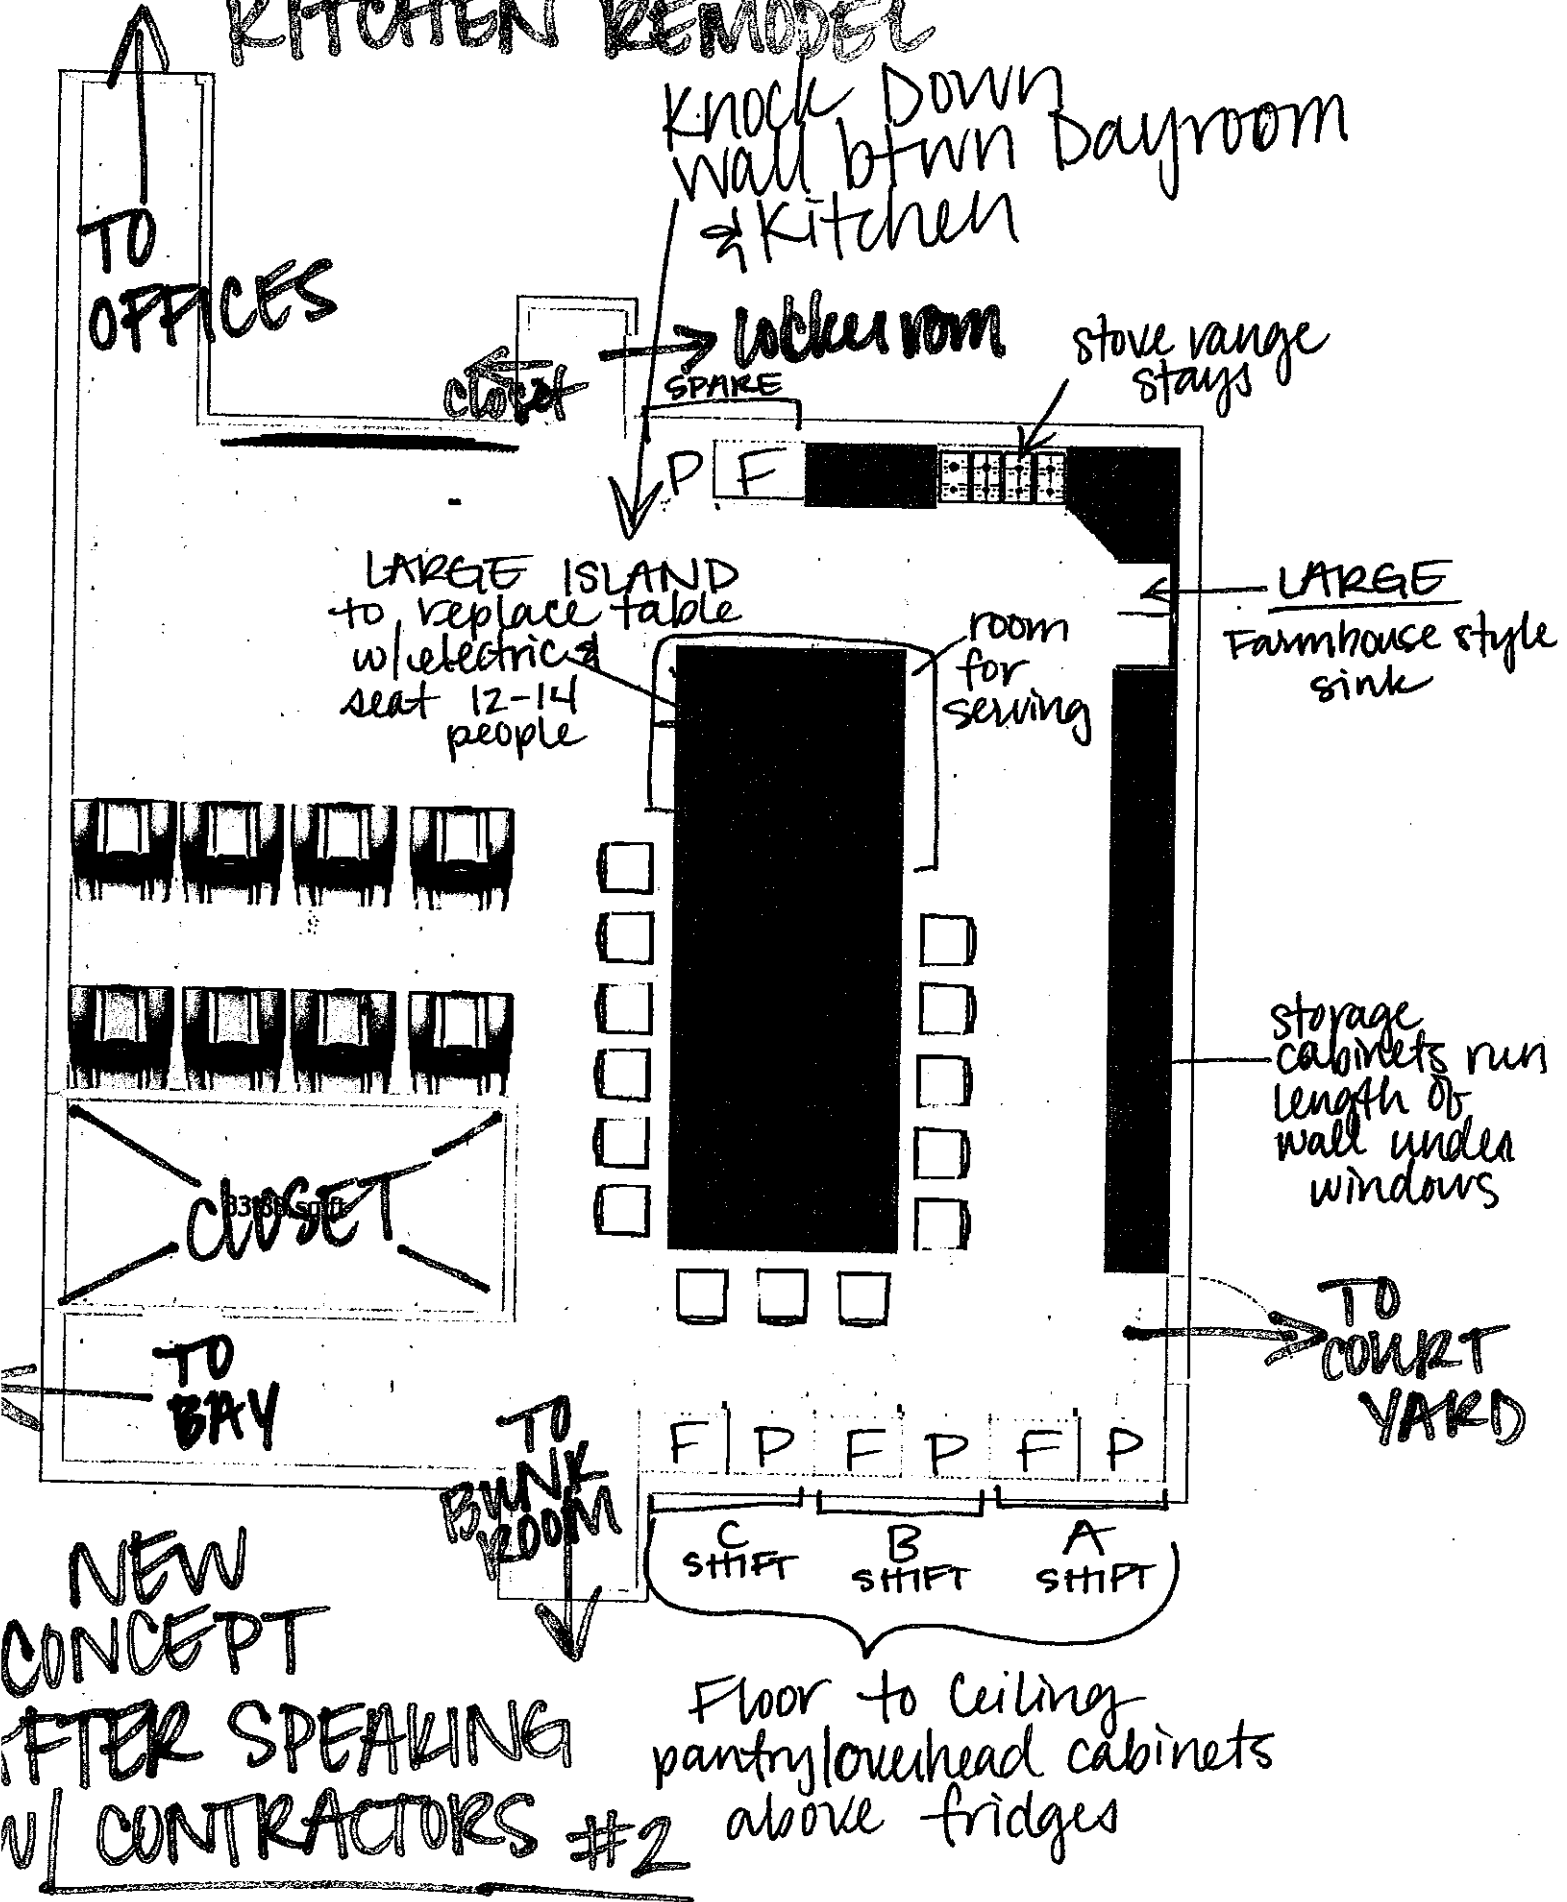 KITCHEN REMODEL
Knock Down
wall btwn Dayroom
& Kitchen
TO
OFFICES
closet
locker room
SPARE
stove range
stays
P F
LARGE ISLAND
to replace table
w/electric &
seat 12-14
people
room
for
serving
LARGE
Farmhouse style
sink
storage
cabinets run
length of
wall under
windows
CLOSET
TO
BAY
TO
BUNK
ROOM
TO
COURT
YARD
F P F P F P
C
SHIFT
B
SHIFT
A
SHIFT
Floor to Ceiling
pantry/overhead cabinets
above fridges
NEW
CONCEPT
AFTER SPEAKING
W/ CONTRACTORS #2